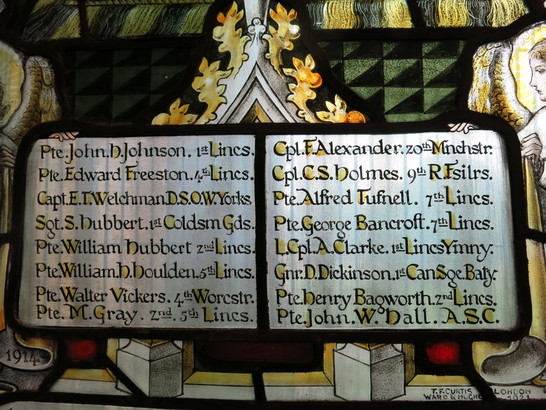 Pte. John. H. Johnson. 1st Lincs.
Pte. Edward Freeston. 4th Lincs.
Capt. E.T. Welchman. D.S.O. W. Yorks.
Sgt. S. Hubbert. 1st Coldsm Gds.
Pte. William Hubbert 2nd Lincs.
Pte. William. H. Houlden. 5th Lincs.
Pte. Walter Vickers. 4th Worcstr.
Pte. M. Gray. 2nd. 5th Lincs.
Cpl. F. Alexander. 20th Mnchstr.
Cpl. C.S. Holmes. 9th R. Fsilrs.
Pte. Alfred Tufnell. 7th Lincs.
Pte. George Bancroft. 7th Lincs.
L. Cpl. A. Clarke. 1st Lincs Ymny.
Gnr. D. Dickinson. 1st Can Sge. Baty.
Pte. Henry Bagworth. 2nd Lincs.
Pte. John. W. Hall. A.S.C.
1914
T.F. CURTIS LONDON
WARD & HUGHES 1921